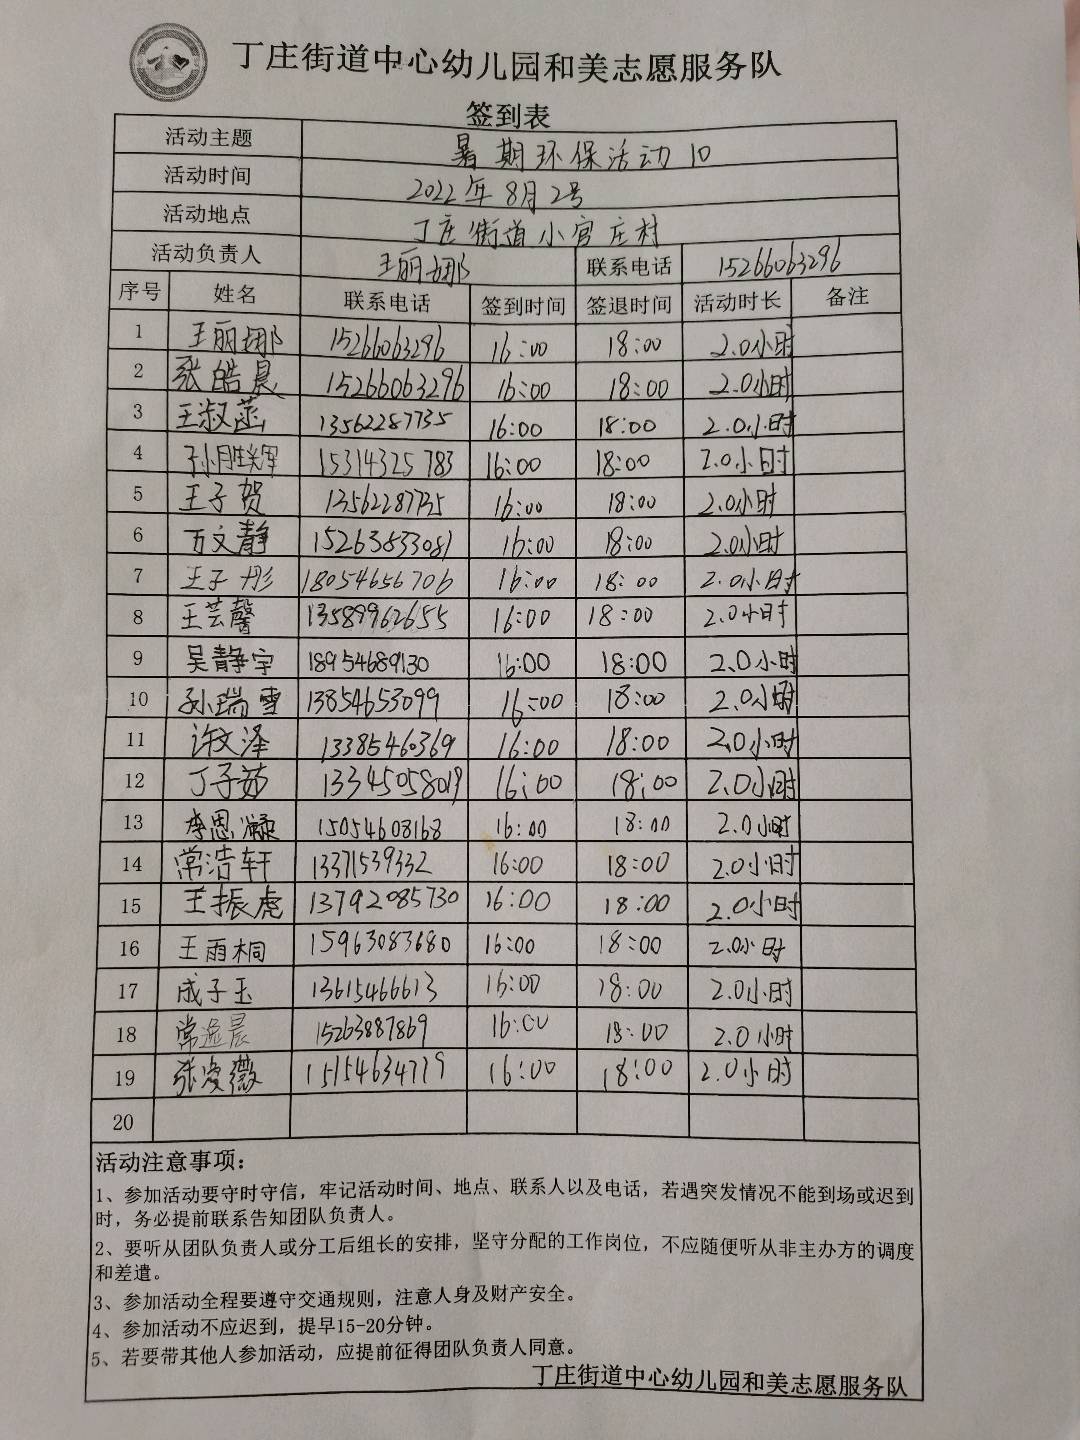 丁庄街道中心幼儿园和美志愿服务队
签到表
活动主题 暑期环保活动10
活动时间 2022年8月2号
活动地点 丁庄街道小官庄村
活动负责人 王丽娜 联系电话 15266063296
序号 姓名 联系电话 签到时间 签退时间 活动时长 备注
1 王丽娜 15266063296 16:00 18:00 2.0小时
2 张皓晨 15266063296 16:00 18:00 2.0小时
3 王淑菡 13562287735 16:00 18:00 2.0小时
4 孙胜辉 15314325783 16:00 18:00 2.0小时
5 王子贺 13562287735 16:00 18:00 2.0小时
6 万文静 15263833081 16:00 18:00 2.0小时
7 王子彤 18054656706 16:00 18:00 2.0小时
8 王芸馨 13589962655 16:00 18:00 2.0小时
9 吴静宇 18954689130 16:00 18:00 2.0小时
10 孙瑞雪 13854653099 16:00 18:00 2.0小时
11 许文泽 13385460369 16:00 18:00 2.0小时
12 丁子茹 13345058019 16:00 18:00 2.0小时
13 李思凝 15054608168 16:00 18:00 2.0小时
14 常浩轩 13371539332 16:00 18:00 2.0小时
15 王振虎 13792085730 16:00 18:00 2.0小时
16 王雨桐 15963083680 16:00 18:00 2.0小时
17 成子玉 13615466613 16:00 18:00 2.0小时
18 常逸晨 15263887869 16:00 18:00 2.0小时
19 张凌薇 15154634719 16:00 18:00 2.0小时
20
活动注意事项：
1、参加活动要守时守信，牢记活动时间、地点、联系人以及电话，若遇突发情况不能到场或迟到
时，务必提前联系告知团队负责人。
2、要听从团队负责人或分工后组长的安排，坚守分配的工作岗位，不应随便听从非主办方的调度
和差遣。
3、参加活动全程要遵守交通规则，注意人身及财产安全。
4、参加活动不应迟到，提早15-20分钟。
5、若要带其他人参加活动，应提前征得团队负责人同意。
丁庄街道中心幼儿园和美志愿服务队